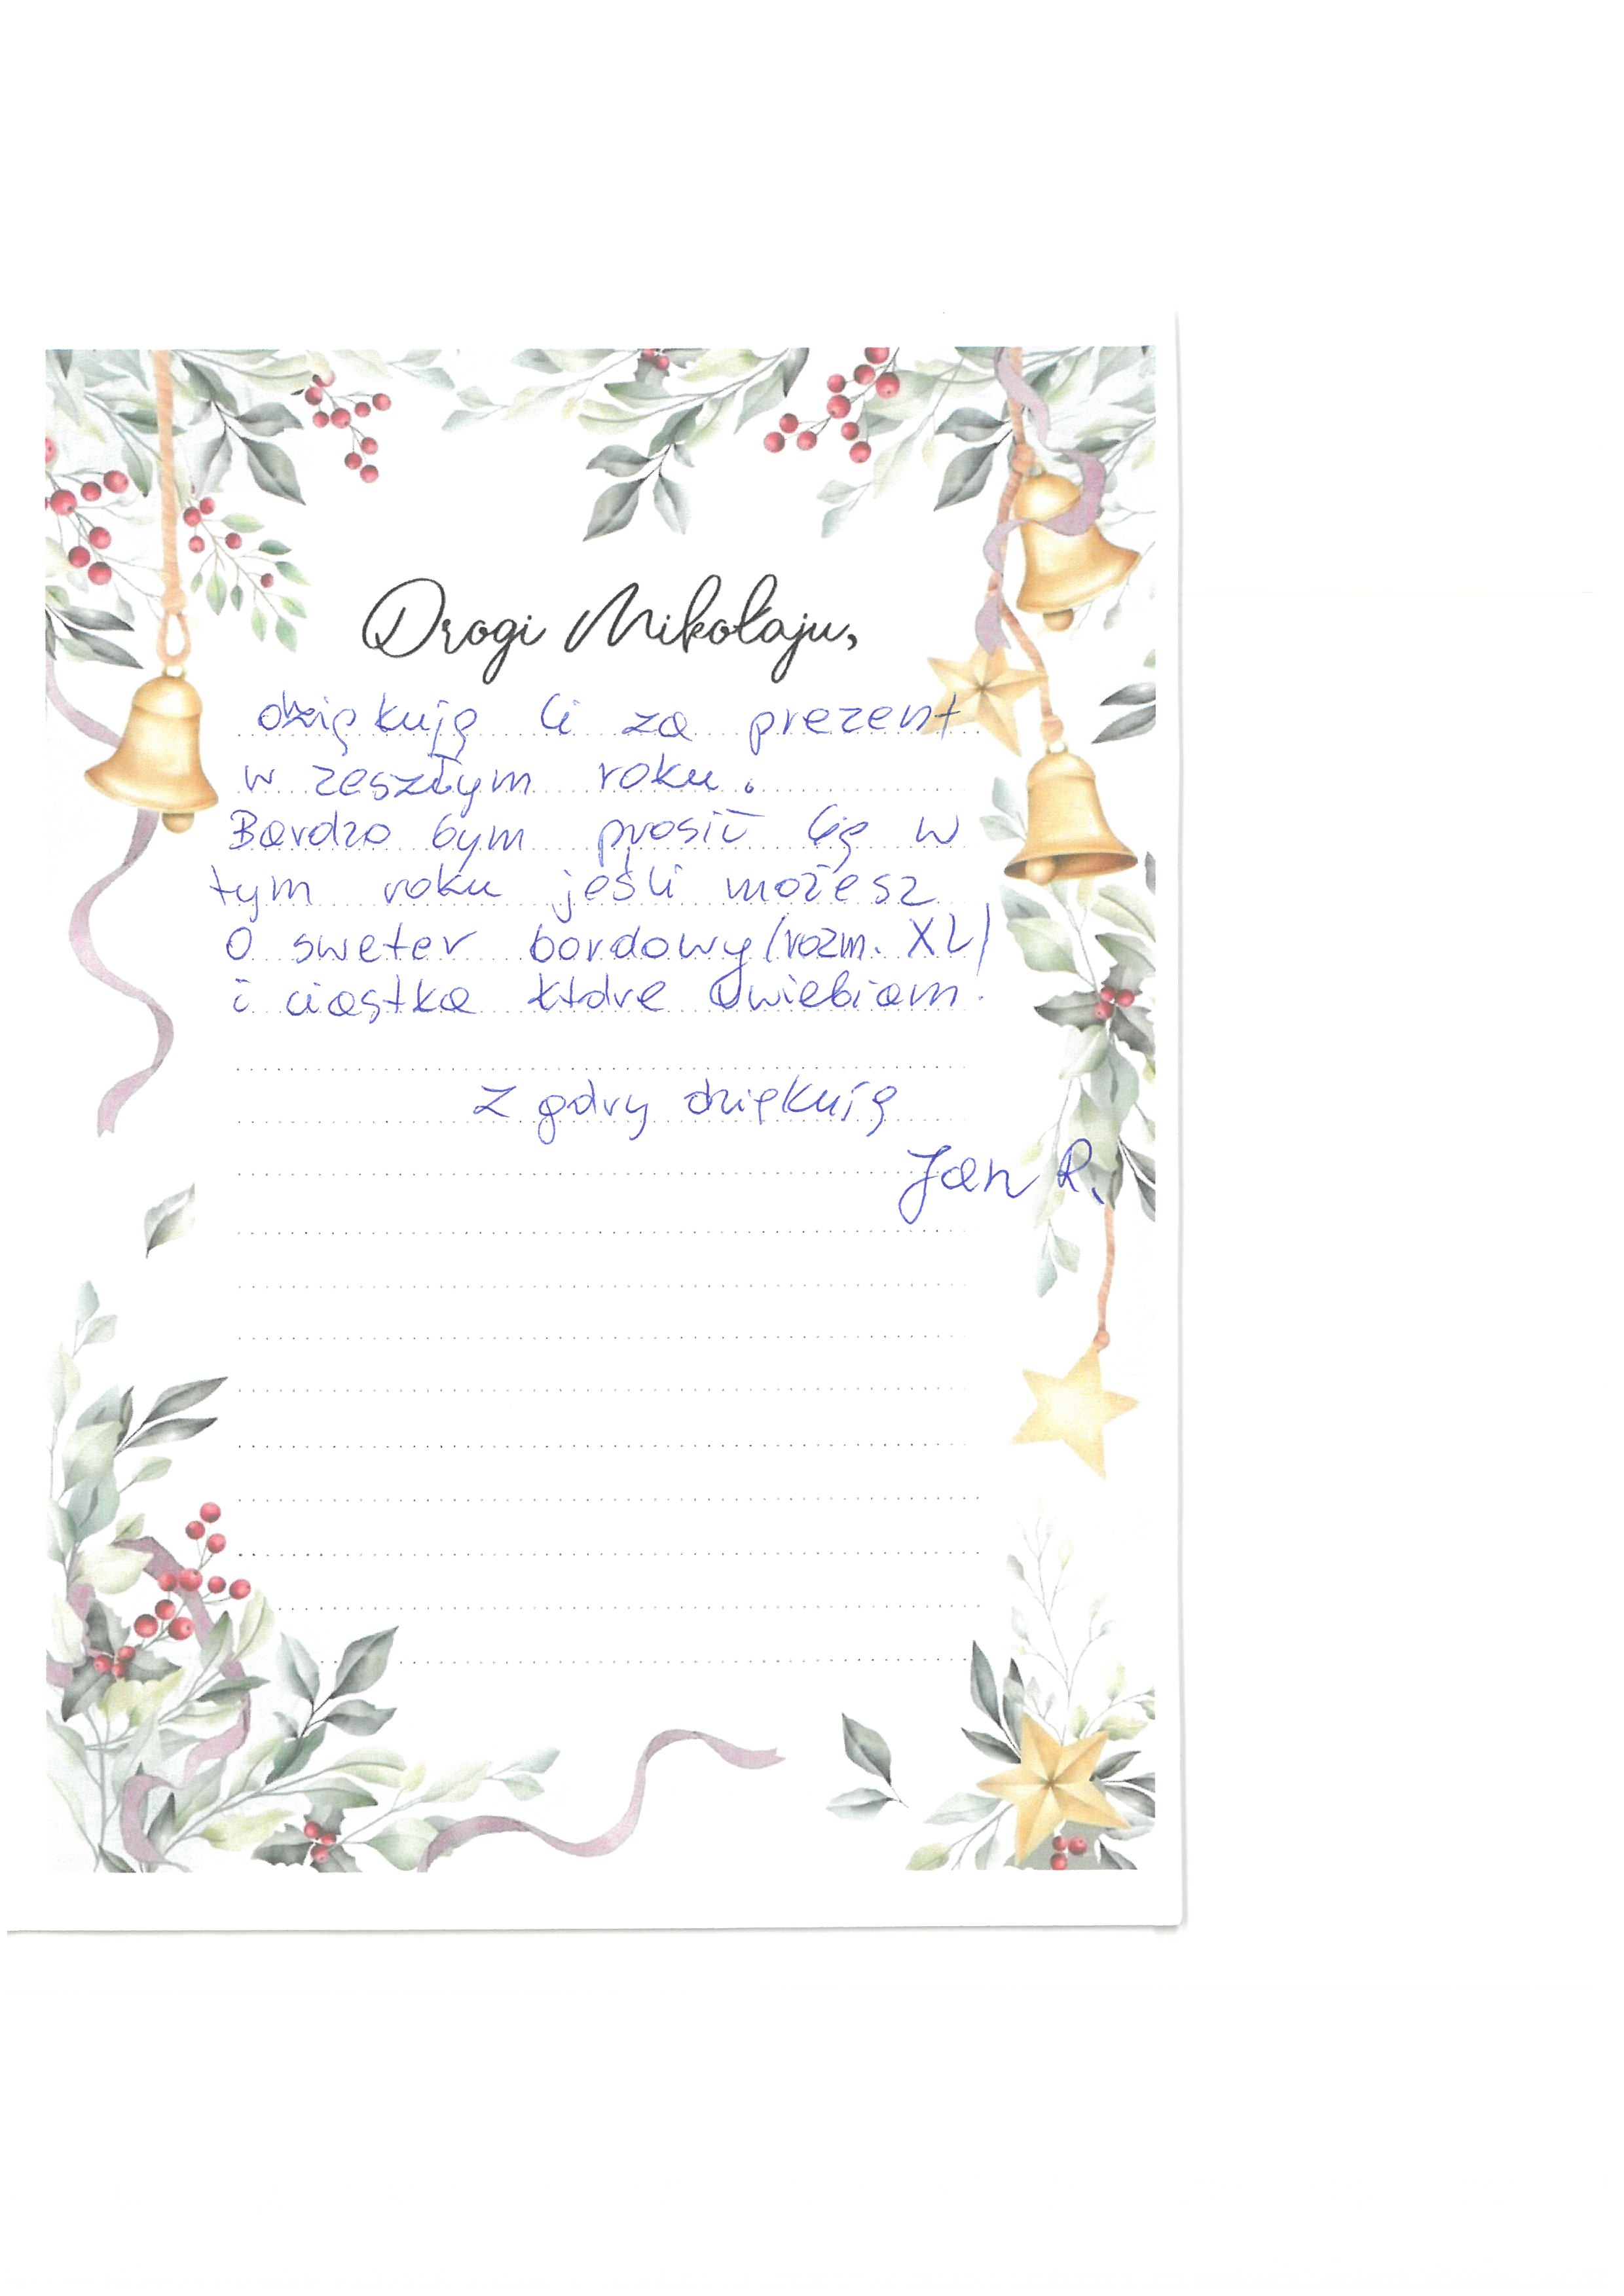 Drogi Mikołaju,
dziękuję Ci za prezent
w zeszłym roku.
Bardzo bym prosił Cię w
tym roku jeśli możesz
o sweter bordowy (rozm. XL)
i ciastka które uwielbiam.
Z góry dziękuję
Jan R.